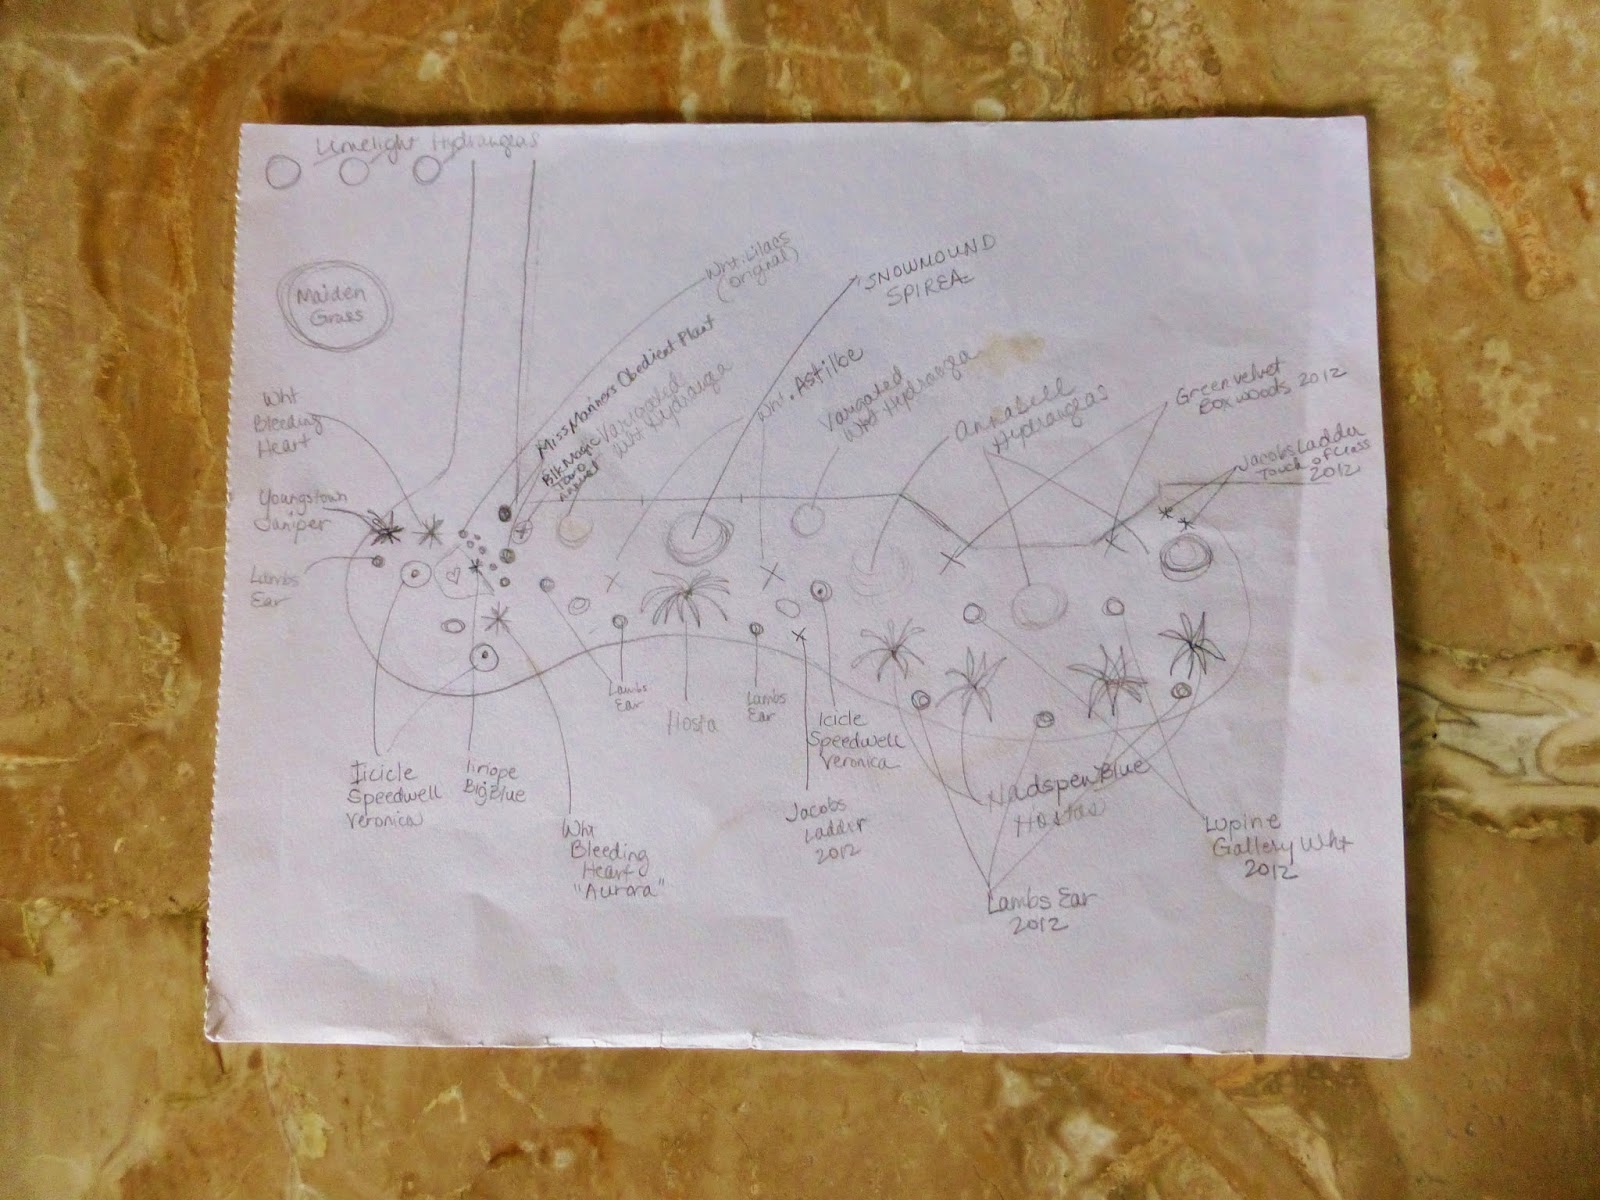 Limelight Hydrangeas
Maiden
Grass
Wht. Lilacs
(original)
SNOWMOUND
SPIREA
Miss Manners Obedient Plant
Blk Magic
Taro
Annual
Varigated
Wht Hydranga
Wht. Astilbe
Varigated
Wht Hydranga
Annabell
Hydrangeas
Green velvet
Boxwoods 2012
Jacobs Ladder
Touch of Class
2012
Wht
Bleeding
Heart
Youngstown
Juniper
Lambs
Ear
Lambs
Ear
Hosta
Lambs
Ear
Icicle
Speedwell
Veronica
Icicle
Speedwell
Veronica
liriope
Big Blue
Wht
Bleeding
Heart
"Aurora"
Jacobs
Ladder
2012
Hadspen Blue
Hostas
Lupine
Gallery Wht
2012
Lambs Ear
2012